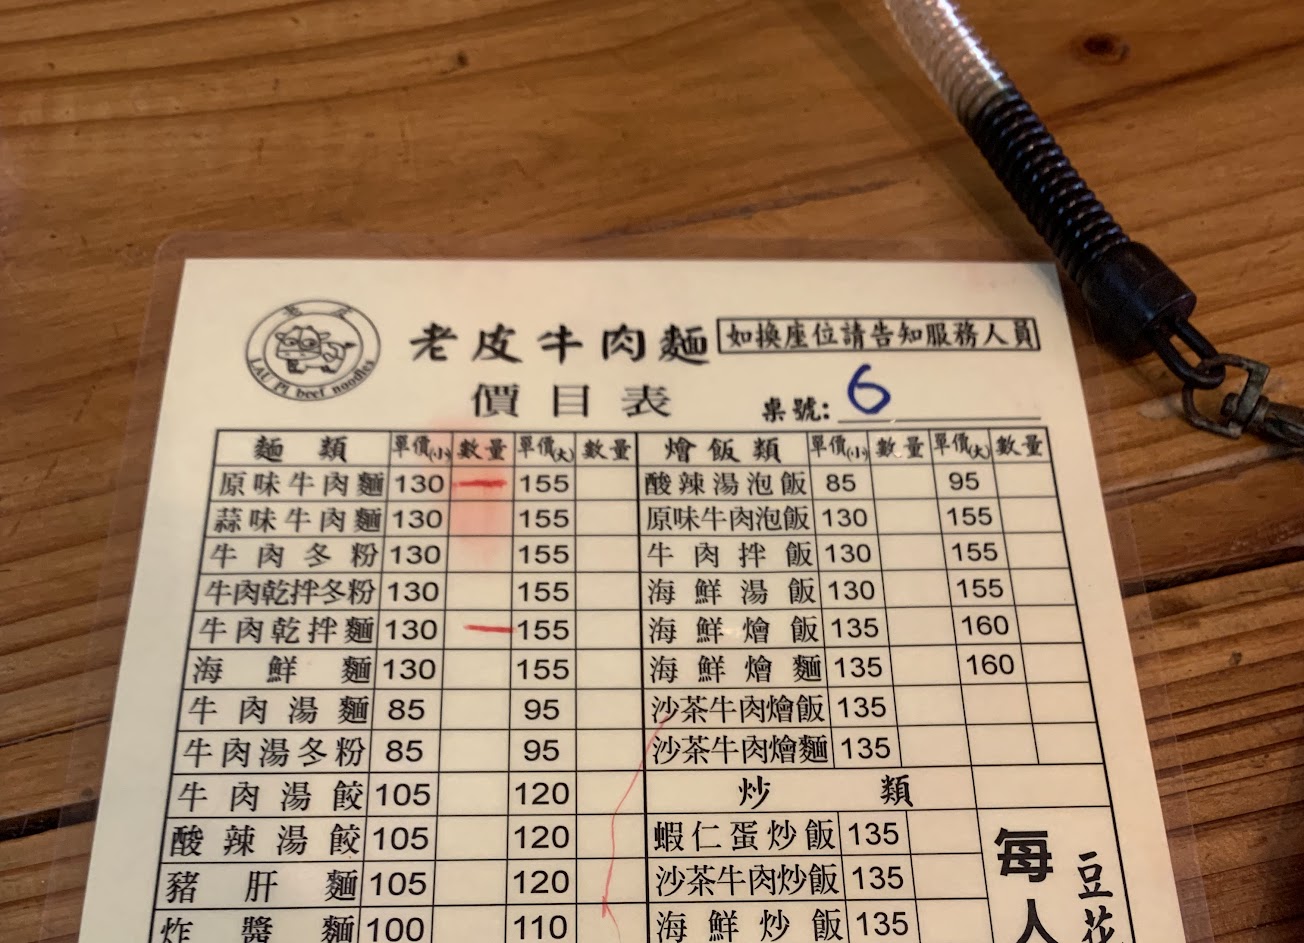 老皮
LAU PI beef noodles
老皮牛肉麵 如換座位請告知服務人員
價目表 桌號: 6
麵類 單價(小) 數量 單價(大) 數量 燴飯類 單價(小) 數量 單價(大) 數量
原味牛肉麵 130 一 155 酸辣湯泡飯 85 95
蒜味牛肉麵 130 155 原味牛肉泡飯 130 155
牛肉冬粉 130 155 牛肉拌飯 130 155
牛肉乾拌冬粉 130 155 海鮮湯飯 130 155
牛肉乾拌麵 130 一 155 海鮮燴飯 135 160
海鮮麵 130 155 海鮮燴麵 135 160
牛肉湯麵 85 95 沙茶牛肉燴飯 135
牛肉湯冬粉 85 95 沙茶牛肉燴麵 135
牛肉湯餃 105 120 炒類
酸辣湯餃 105 120 蝦仁蛋炒飯 135
豬肝麵 105 120 沙茶牛肉炒飯 135
炸醬麵 100 110 海鮮炒飯 135
每人
豆花